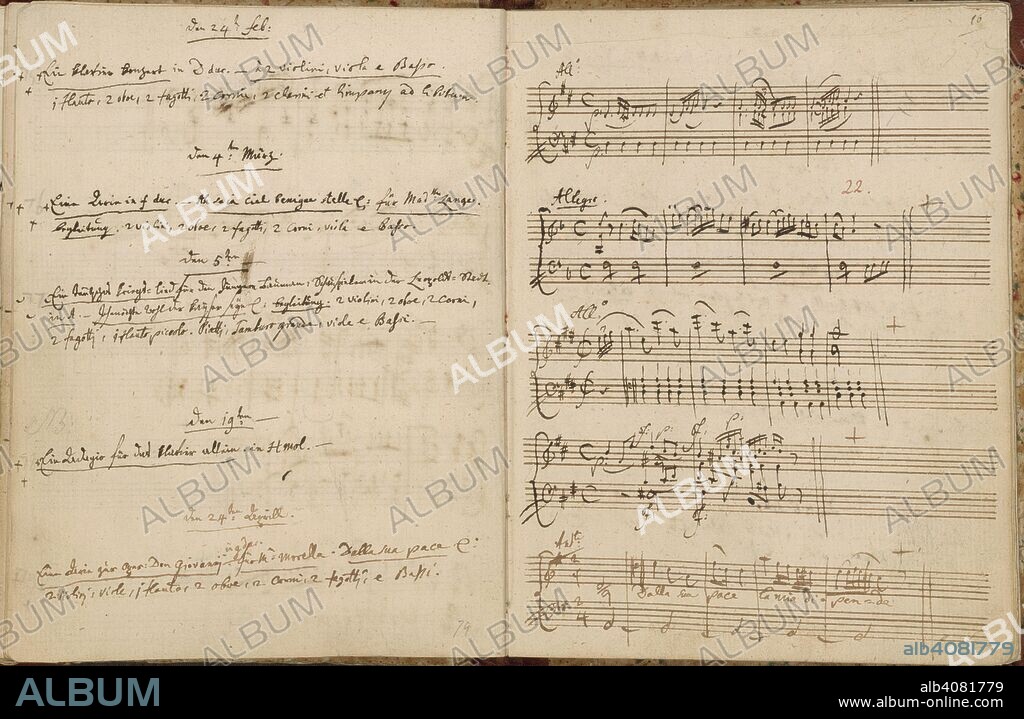 den 24t feb:
Ein klavier konzert in D dur. — à 2 violini, viola e Basso.
1 flauto, 2 oboe, 2 fagotti, 2 corni, 2 clarini et Timpany ad libitum.
den 4t: März:
Eine Aria in f dur. — Ah se in ciel benigne stelle Ec: für Mad:me Lange.
begleitung. 2 violini, 2 oboe, 2 fagotti, 2 Corni, viola e Basso.
den 5ten
Ein teutsches kriegs-lied für den Baumann, Schauspieler in der Leopolds-Stadt,
in A. — Ich möchte wohl der kayser seyn Ec: begleitung. 2 violini, 2 oboe, 2 Corni,
2 fagotti, 1 flauto piccolo. Piatti, Tamburo grande, viole e Bassi. —
den 19ten
Ein Adagio für das klavier allein, in H mol. —
den 24ten Aprill.
in g dur.
Eine Aria zur Oper: Don Giovanni. für Mr: Morella. Dalla sua pace Ec:
2 violini, viole, 1 flauto, 2 oboe, 2 Corni, 2 fagotti, e Bassi.
79
16
All:o
22.
Allegro.
All:o
fp: p: sf: f:
And:te
Dalla sua pace la mia di- pen-de
ALBUM
alb4081779
ALBUM
alb4081779
www.album-online.com